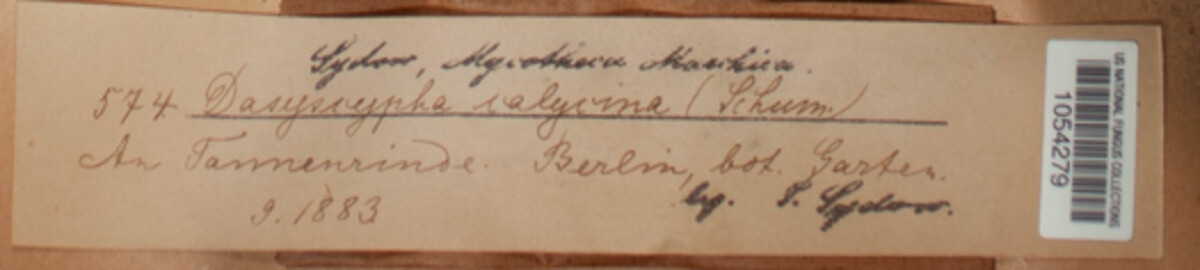 Sydow, Mycotheca Marchica.
574. Dasyscypha calycina (Schum)
An Tannenrinde. Berlin, bot. Garten.
9. 1883
leg. P. Sydow.
US NATIONAL FUNGUS COLLECTIONS
1054279